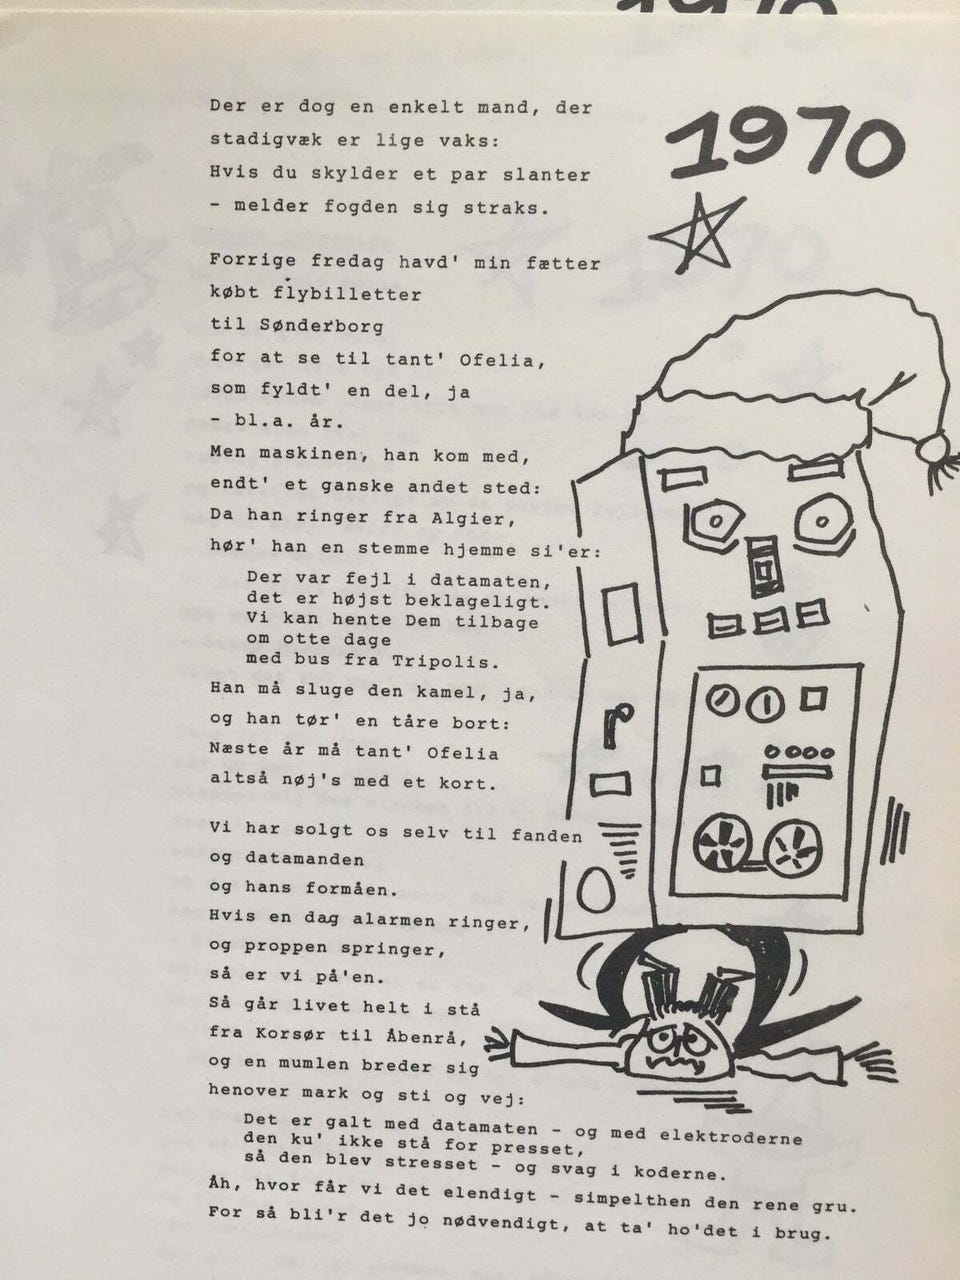 1970
Der er dog en enkelt mand, der
stadigvæk er lige vaks:
Hvis du skylder et par slanter
- melder fogden sig straks.
1970
Forrige fredag havd' min fætter
købt flybilletter
til Sønderborg
for at se til tant' Ofelia,
som fyldt' en del, ja
- bl.a. år.
Men maskinen, han kom med,
endt' et ganske andet sted:
Da han ringer fra Algier,
hør' han en stemme hjemme si'er:
Der var fejl i datamaten,
det er højst beklageligt.
Vi kan hente Dem tilbage
om otte dage
med bus fra Tripolis.
Han må sluge den kamel, ja,
og han tør' en tåre bort:
Næste år må tant' Ofelia
altså nøj's med et kort.
Vi har solgt os selv til fanden
og datamanden
og hans formåen.
Hvis en dag alarmen ringer,
og proppen springer,
så er vi på'en.
Så går livet helt i stå
fra Korsør til Åbenrå,
og en mumlen breder sig
henover mark og sti og vej:
Det er galt med datamaten - og med elektroderne
den ku' ikke stå for presset,
så den blev stresset - og svag i koderne.
Åh, hvor får vi det elendigt - simpelthen den rene gru.
For så bli'r det jo nødvendigt, at ta' ho'det i brug.